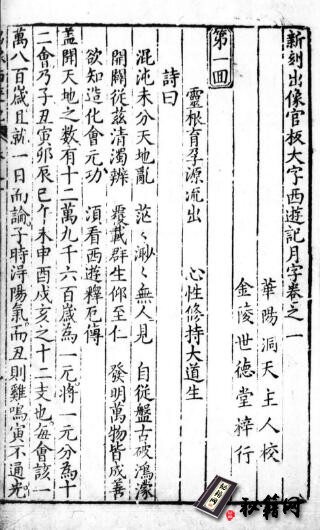 新刻出像官板大字西遊記月字卷之一
華陽洞天主人校
金陵世德堂梓行
第一回
靈根育孕源流出　心性修持大道生
詩曰
混沌未分天地亂　茫〻渺〻無人見　自從盤古破鴻濛
開闢從茲清濁辨　覆載群生仰至仁　發明萬物皆成善
欲知造化會元功　須看西遊釋厄傳
蓋聞天地之數有十二萬九千六百歲為一元將一元分為十
二會乃子丑寅卯辰巳午未申酉戌亥之十二支也每會該一
萬八百歲且就一日而論子時淂陽氣而丑則雞鳴寅不通光
秘籍网